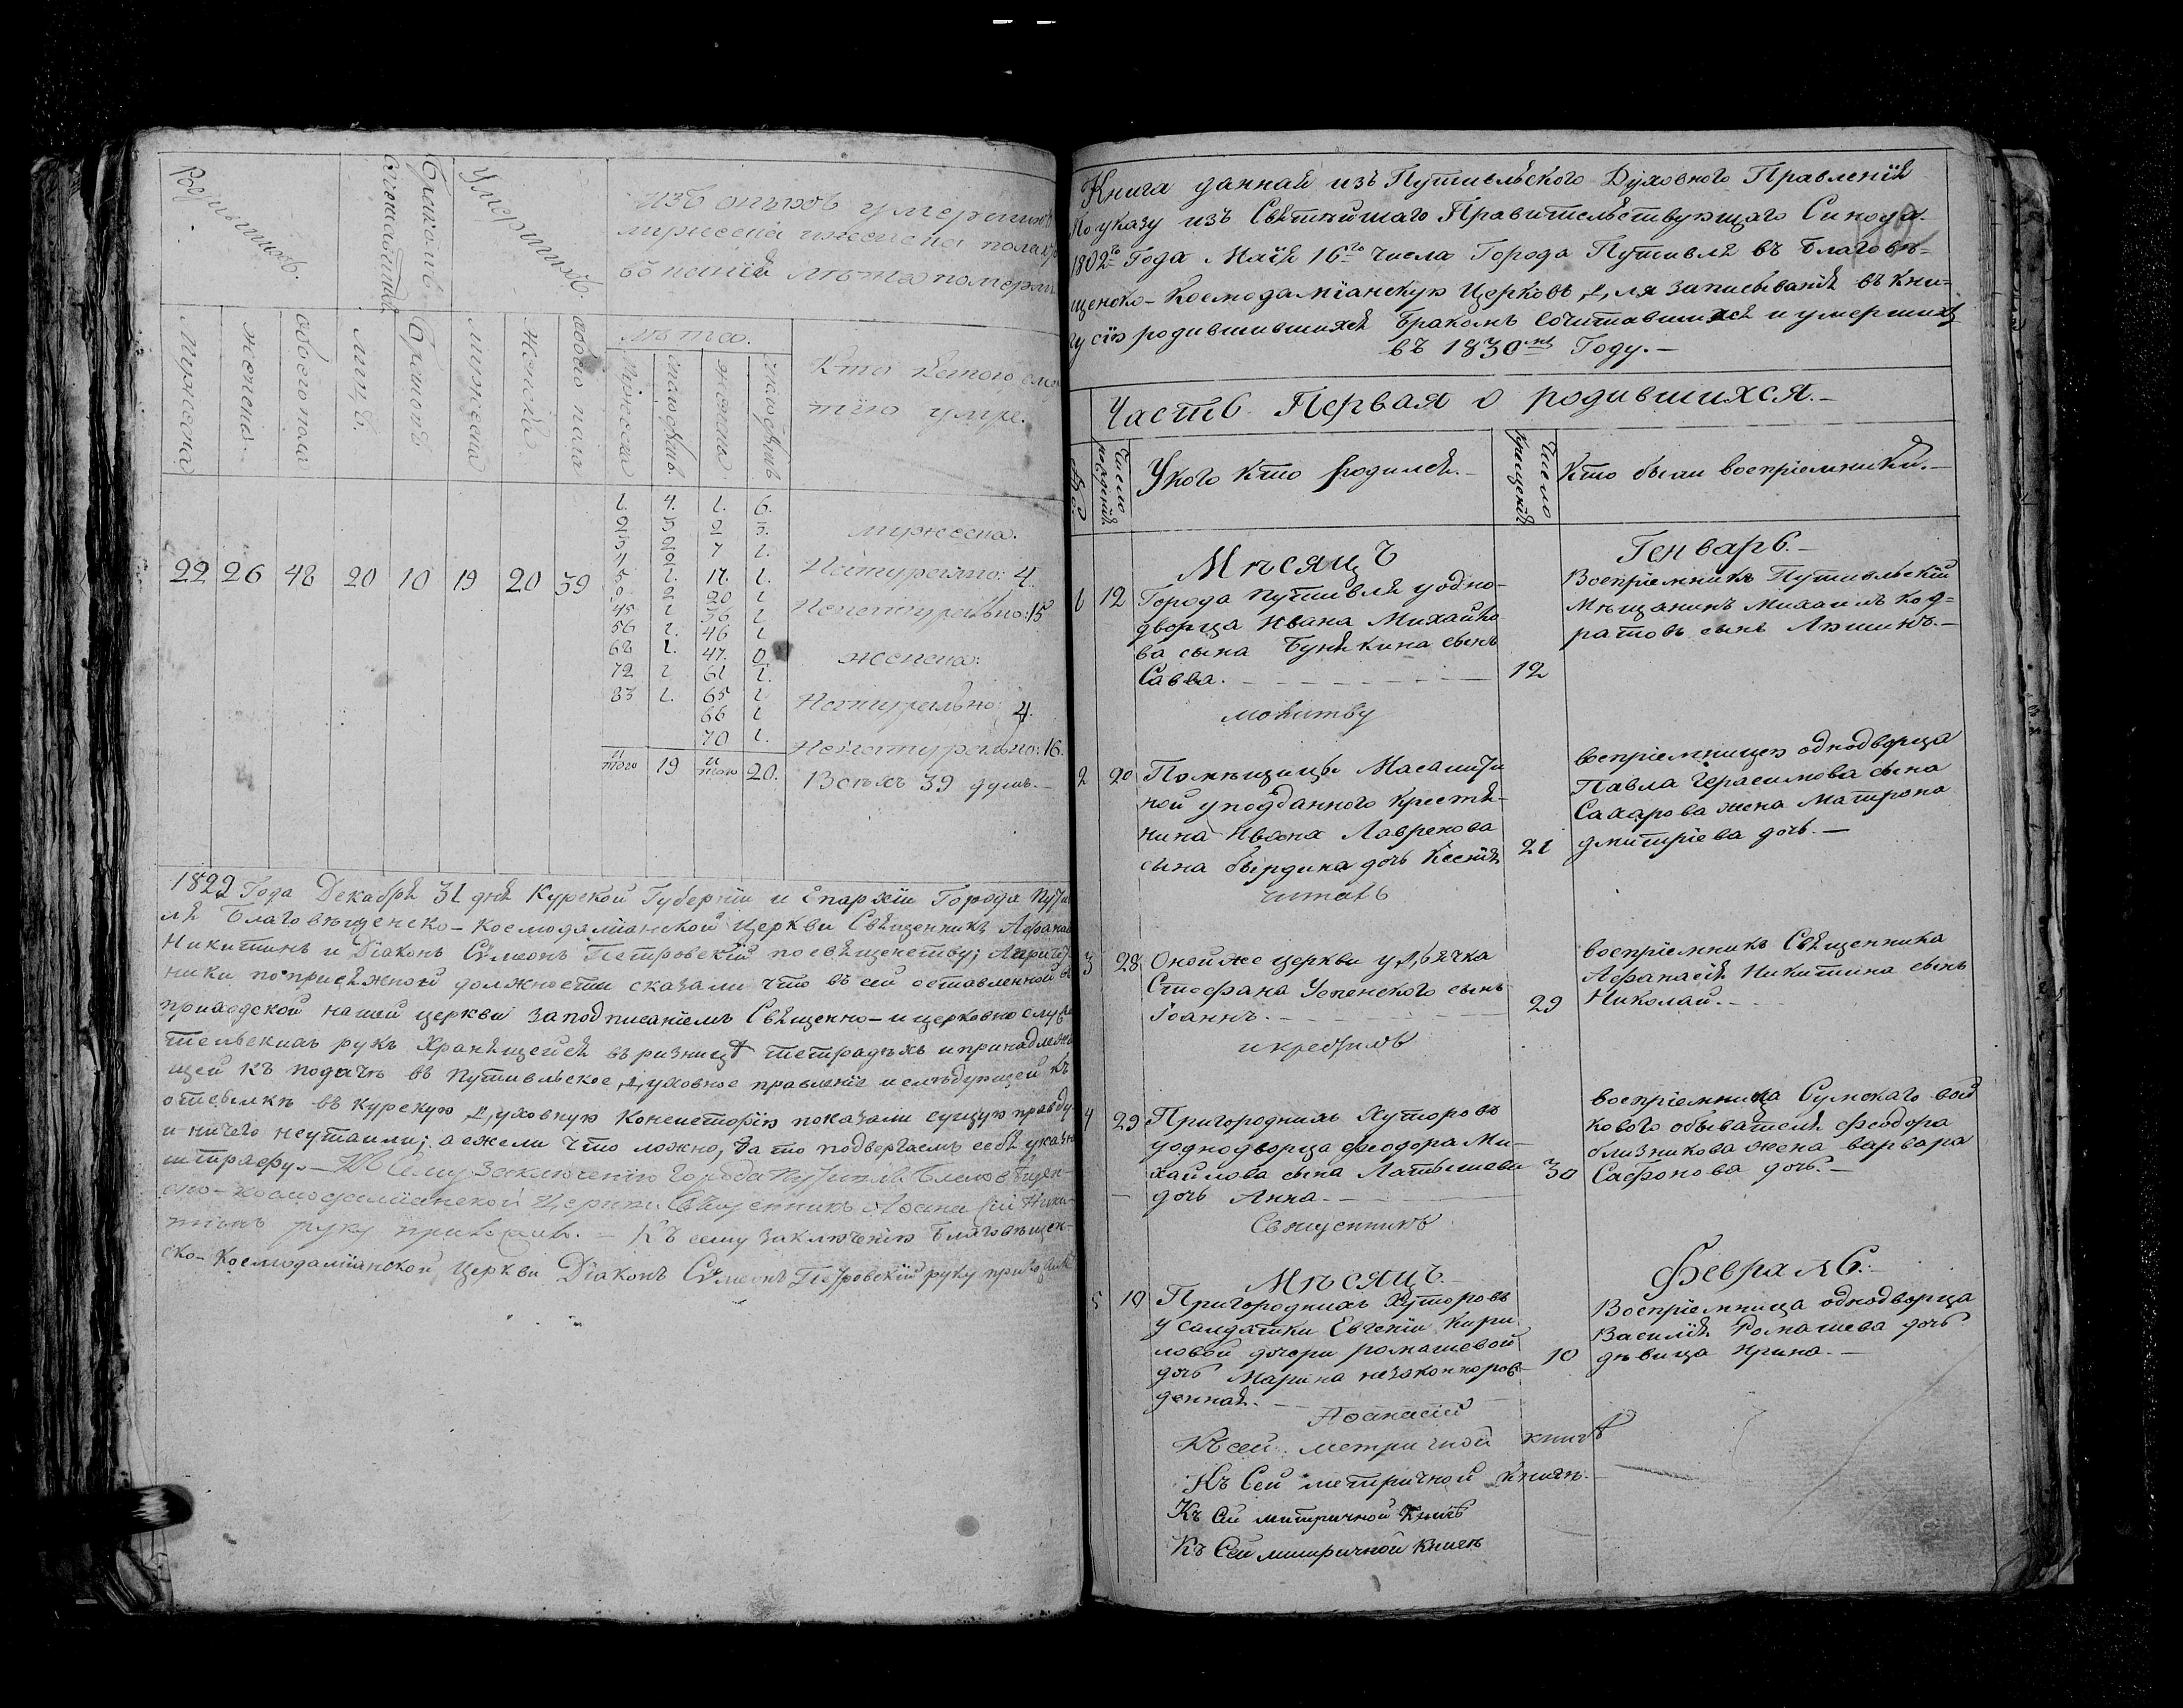 Родившихъ.
Бракомъ сочетавшихся
Умершихъ.
Изъ оныхъ умершихъ
мужеска и женска пола кто
въ какія лѣта померли
мужеска
женска
обоего пола
лицъ.
браковъ
мужеска
женска
обоего пола
лѣта.
мужеска
число душъ.
женска
число душъ
Кто какого
умре.
1. 4. 1. 6.
2 5 2 3.
3 2 7 1.
4 2
5 1. 17. 1.
9 2 20 1
45 1 36 1
56 1. 46 1
68 1. 47. 0
72 1 61 1.
83 1. 65 1
66 1
70 1.
итого 19 итого 20.
мужеска.
Натурально: 4.
Ненатурально: 15
женска:
Натурально: 4.
Ненатурально: 16.
Всѣхъ 39 душъ.—
22 26 48 20 10 19 20 39
1829 Года Декабря 31 дня Курской Губерніи и Епархіи Города Пути
ля Благовѣщенско-Космодаміанской Церкви Священникъ Афанас
Никитинъ и Діаконъ Сѵмеонъ Петровскій по священству; А причет
ники по присяжной должности сказали что въ сей оставленной въ
приходской нашей церкви за подписаніемъ Священно-и церковнослу
тельскихъ рукъ хранящейся въ ризницѣ тетрадѣхъ и принадлежа
щей къ подачѣ въ Путивльское духовное правленіе и слѣдующей къ
отсылкѣ въ курскую духовную Консисторію показали сущую правду
и ничего неутаили; а ежели что ложно, за то подвергаемъ себя указн
штрафу.— Къ сему заключенію города Путивля Благовѣщен-
ско-космодаміанской Церкви Священникъ Афанасій Ники-
тинъ руку приложилъ.— Къ сему заключенію Благовѣщен-
ско-Космодаміанской Церкви Діаконъ Сѵмеонъ Петровскій руку приложилъ
Книга данная изъ Путивльского Духовного Правленія
По указу изъ Святѣйшаго Правительствующаго Синода
1802го Года Маія 16го числа Города Путивля въ Благовѣ-
щенско-Космодаміанскую Церковь для записыванія въ кни-
гу сію родившившихся Бракомъ Сочетавшихся и умершихъ
въ 1830мъ Году.—
Часть Первая о родившихся.—
Число рожденія
У кого кто родился.—
Число крещенія
Кто были воспріемники.—
Мѣсяцъ Генварь.—
1 12 Города Путивля у одно-
дворца Ивана Михайло
ва сына Бунякина сынъ
Савва.— 12
Воспріемникъ Путивльскій
Мѣщанинъ Михаилъ Код-
ратовъ сынъ Лѣшинъ.—
молитву
2 20 Помѣщицы Масалити
ной у подданного крестья-
нина Ивана Лавренова
сына бырдина дочь Ксенія 21
воспріемницею однодворца
Павла Герасимова сына
Сахарова жена Матрона
дмитріева дочь.—
читалъ
3 28 Оной же церкви у дьячка
Стефана Успенского сынъ
Іоаннъ.— 29
воспріемникъ Священника
Афанасія Никитина сынъ
Николай.—
и крестилъ
4 29 Пригороднихъ Хуторовъ
у однодворца Феодора Ми-
хайлова сына Латышева
дочь Анна.— 30
воспріемница Сумскаго вой
скового обывателя Феодора
близникова жена варвара
Сафонова дочь.—
Священникъ
Мѣсяцъ.— Февраль.—
5 10 Пригороднихъ Хуторовъ
у салдатки Евгеніи Кири
ловой дочери ромашевой
дочь Марина незаконнорож-
денная.— 10
Воспріемница однодворца
Василія Ромашева дочь
дѣвица Ирина.—
Афанасій
Къ сей метричной книгѣ
Къ Сей метричной книгѣ.
Къ Сей митричной книгѣ
Къ Сей митричной книгѣ